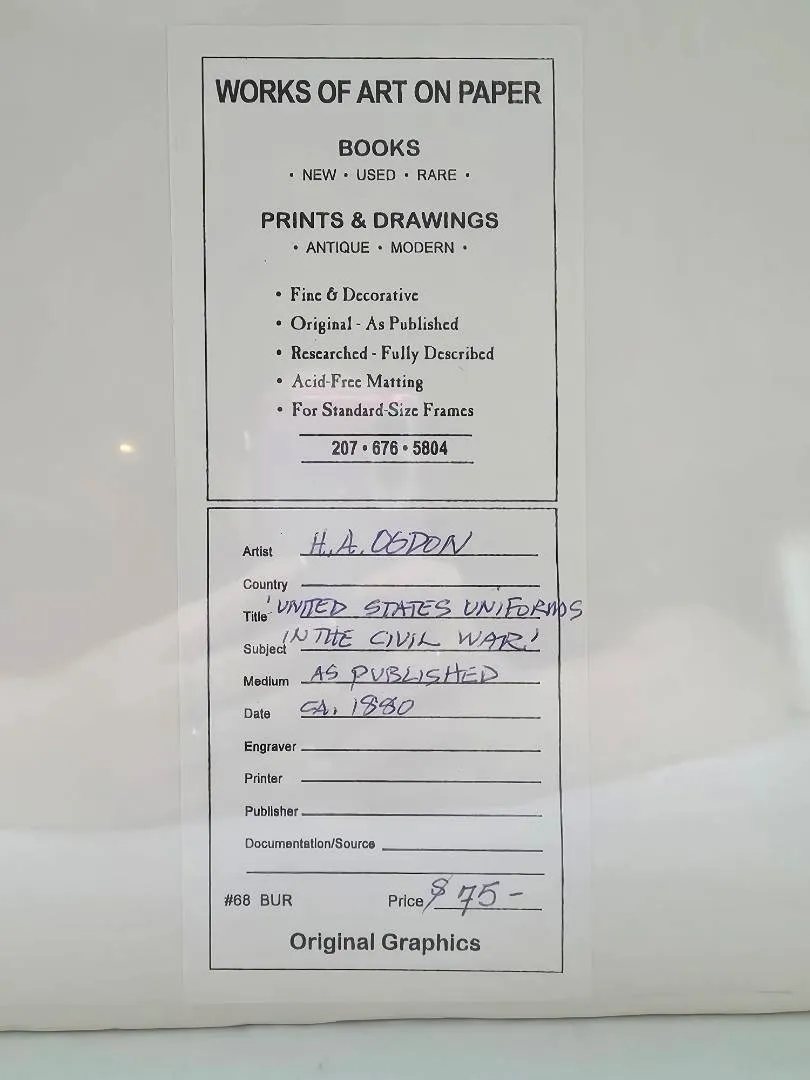 WORKS OF ART ON PAPER
BOOKS
• NEW • USED • RARE •
PRINTS & DRAWINGS
• ANTIQUE • MODERN •
• Fine & Decorative
• Original - As Published
• Researched - Fully Described
• Acid-Free Matting
• For Standard-Size Frames
207 • 676 • 5804
Artist H.A. OGDON
Country
Title 'UNITED STATES UNIFORMS
Subject IN THE CIVIL WAR'
Medium AS PUBLISHED
Date CA. 1880
Engraver
Printer
Publisher
Documentation/Source
#68 BUR Price $75-
Original Graphics